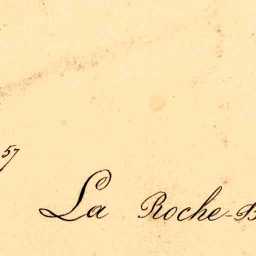 57
La Roche-B